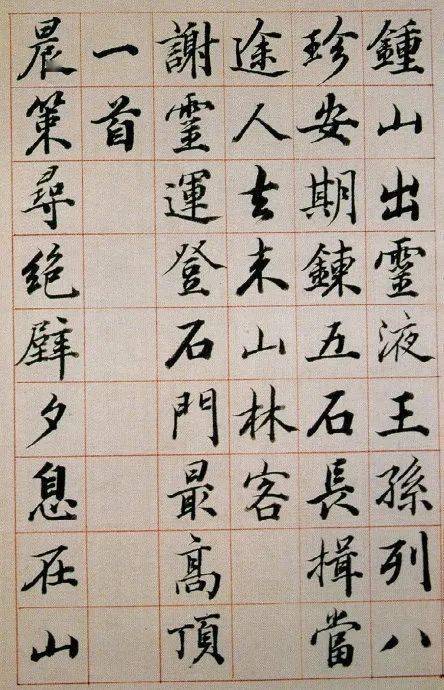 鍾山出靈液王孫列八
珍安期鍊五石長揖當
途人去來山林客
謝靈運登石門最高頂
一首
晨策尋絕壁夕息在山